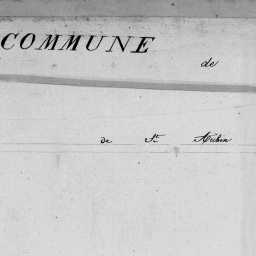 COMMUNE
de
De St. Aubin